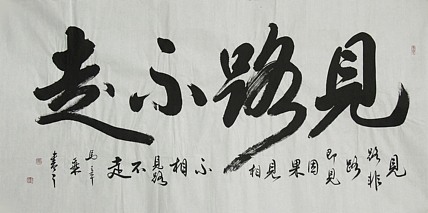 見路不走
見路非路
即見因果
見相不相
見路不走